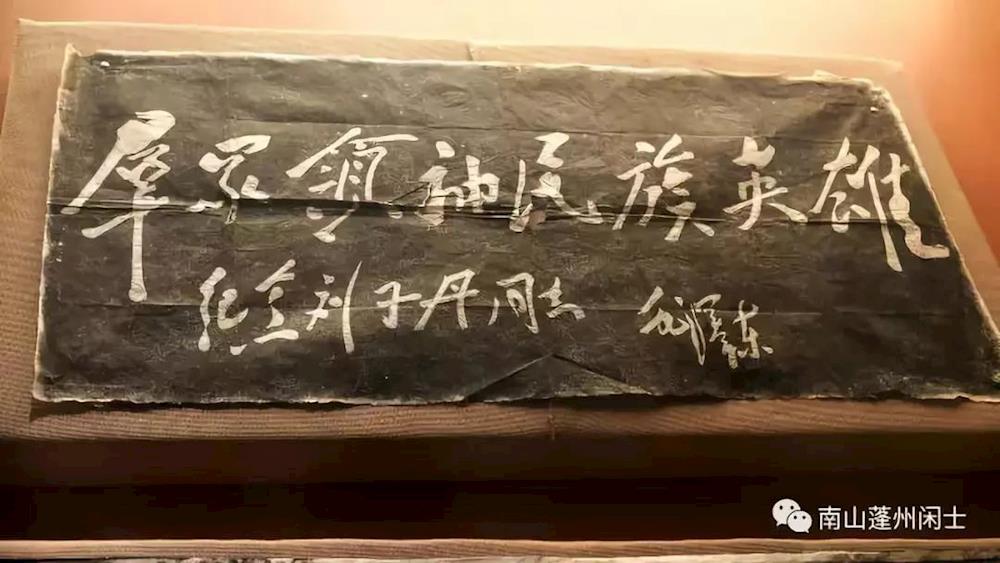 羣众领袖民族英雄
纪念刘子丹同志 毛泽东
南山蓬州闲士